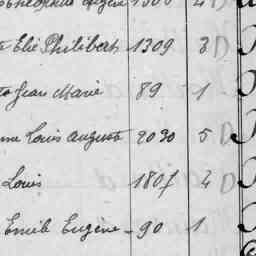 Elie Philibert 1309 3 D
Jean Marie 89 1
Louis Auguste 2030 5 D
Louis 1807 4 D
Emile Eugène 90 1